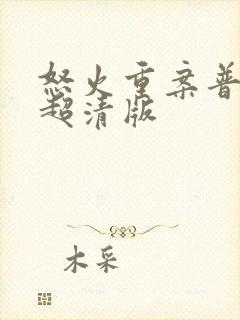 怒火重案普
超清版
木采